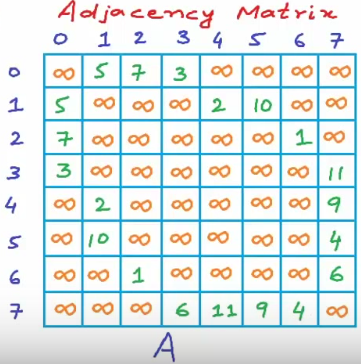 Adjacency Matrix
0 1 2 3 4 5 6 7
0 ∞ 5 7 3 ∞ ∞ ∞ ∞
1 5 ∞ ∞ ∞ 2 10 ∞ ∞
2 7 ∞ ∞ ∞ ∞ ∞ 1 ∞
3 3 ∞ ∞ ∞ ∞ ∞ ∞ 11
4 ∞ 2 ∞ ∞ ∞ ∞ ∞ 9
5 ∞ 10 ∞ ∞ ∞ ∞ ∞ 4
6 ∞ ∞ 1 ∞ ∞ ∞ ∞ 6
7 ∞ ∞ ∞ 6 11 9 4 ∞
A